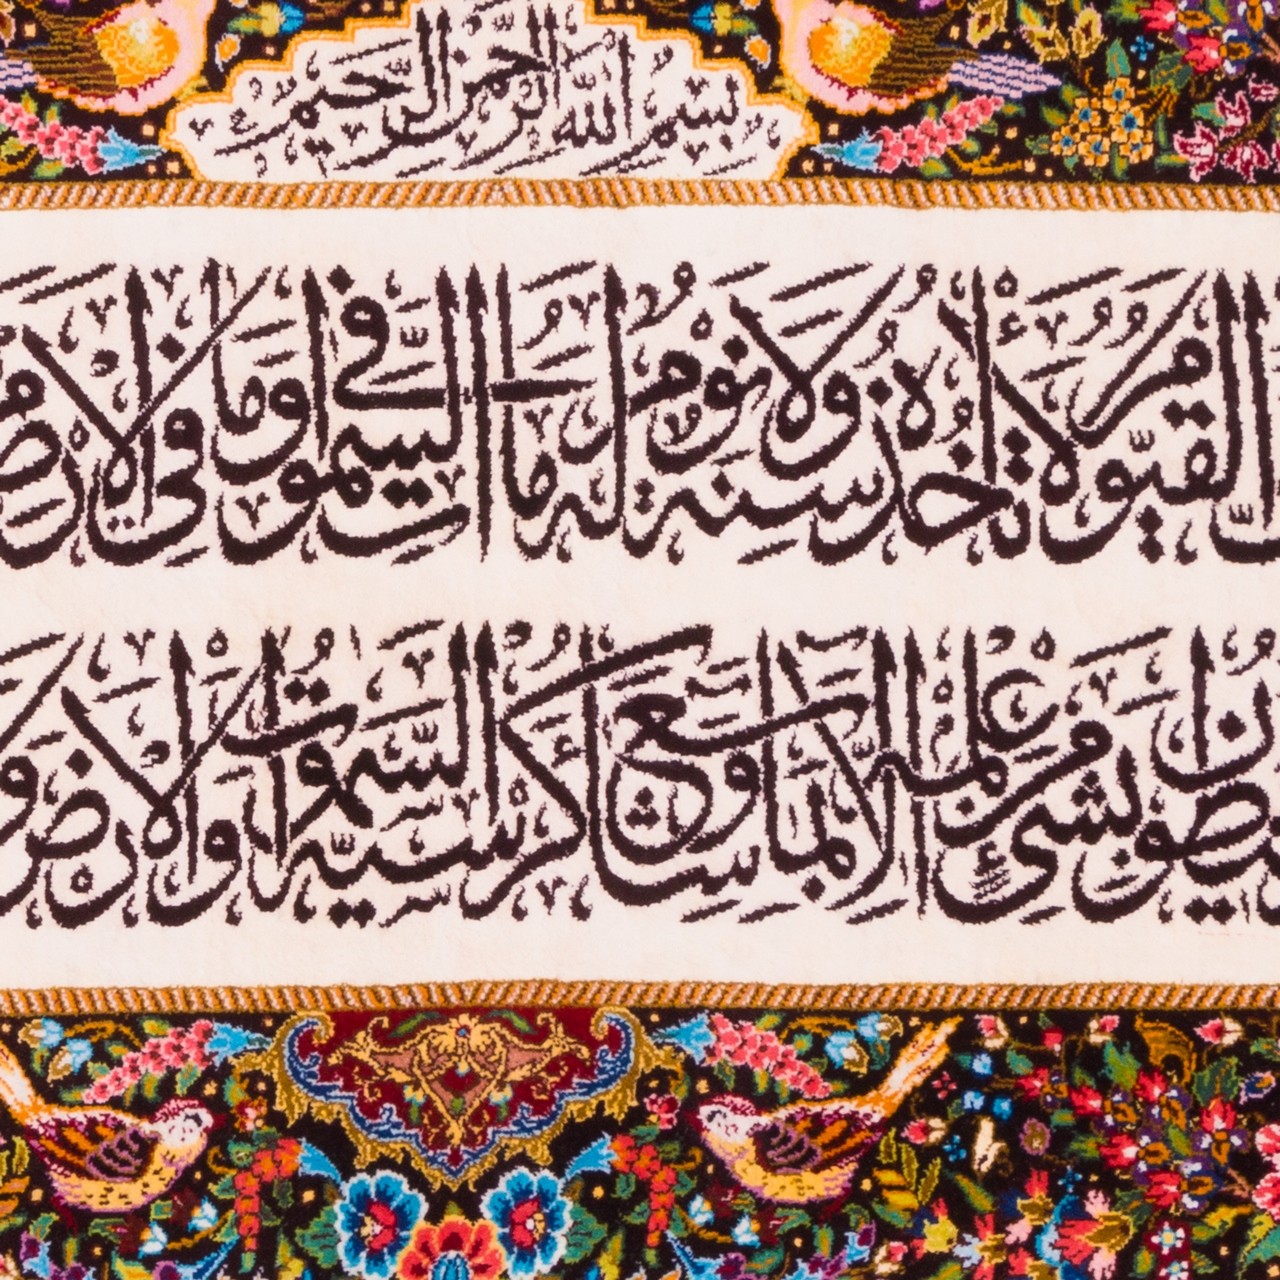 بِسْمِ اللَّهِ الرَّحْمَنِ الرَّحِيمِ
الْقَيُّومُ لَا تَأْخُذُهُ سِنَةٌ وَلَا نَوْمٌ لَهُ مَا فِي السَّمَوَاتِ وَمَا فِي الْأَرْضِ
بِشَيْءٍ مِنْ عِلْمِهِ إِلَّا بِمَا شَاءَ وَسِعَ كُرْسِيُّهُ السَّمَوَاتِ وَالْأَرْضَ